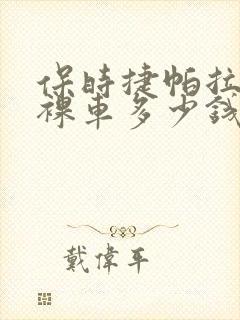 保時捷帕拉
裸車多少錢
戴偉平